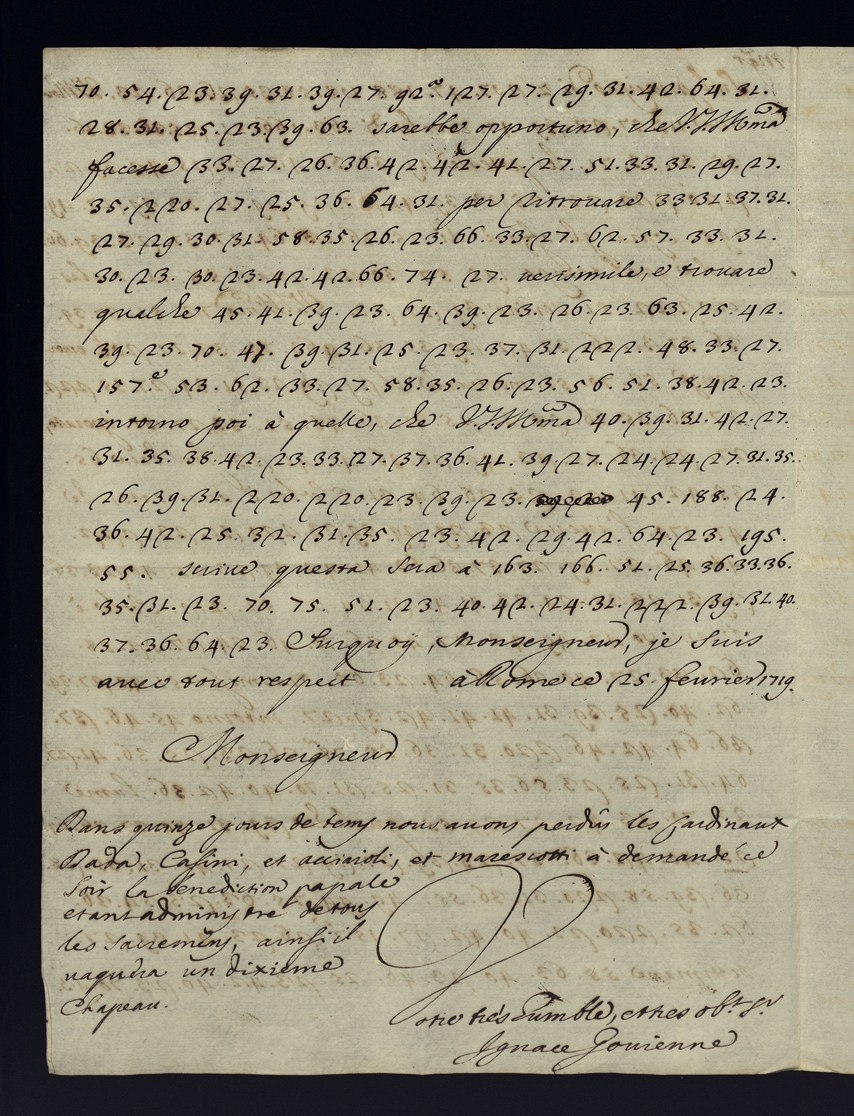 70. 54. 23. 39. 31. 39. 27. 92.a 127. 27. 29. 31. 42. 64. 31.
28. 31. 25. 23. 39. 63. sarebbe opportuno, che V.S. Illma
facesse 33. 27. 26. 36. 42. 42. 41. 27. 51. 33. 31. 29. 27.
35. 220. 27. 25. 36. 64. 31. per ritrouare 33. 31. 37. 31.
27. 29. 30. 31. 58. 35. 26. 23. 66. 33. 27. 62. 57. 33. 31.
30. 23. 30. 23. 42. 42. 66. 74. 27. verisimile, e trouare
qualche 45. 41. 39. 23. 64. 39. 23. 26. 23. 63. 25. 42.
39. 23. 70. 47. 39. 31. 25. 23. 37. 31. 222. 48. 33. 27.
157.e 53. 62. 33. 27. 58. 35. 26. 23. 56. 51. 38. 42. 23.
intorno poi à quelle, che V.S. Illma 40. 39. 31. 42. 27.
31. 35. 38. 42. 23. 33. 27. 37. 36. 41. 39. 27. 24. 24. 27. 31. 35.
26. 39. 31. 220. 220. 23. 39. 23. 45. 188. 24.
36. 42. 25. 32. 31. 35. 23. 42. 29. 42. 64. 23. 195.
55. scriue questa sera à 163. 166. 51. 25. 36. 33. 36.
35. 31. 23. 70. 75. 51. 23. 40. 42. 24. 31. 222. 39. 31. 40.
37. 36. 64. 23. Surquoÿ, Monseigneur, je suis
auec tout respect à Rome ce 25. feurier 1719.
Monseigneur
Dans quinze jours de tems nous auons perdûs les Cardinaux
Dada, Casini, et acciaioli, et marescotti à demandé ce
soir la benediction papale
etant administré de tous
les sacremens, ainsi il
vaquera un dixieme
Chapeau.
Votre trés humble, et tres obt. Sr.
Ignace Gouienne